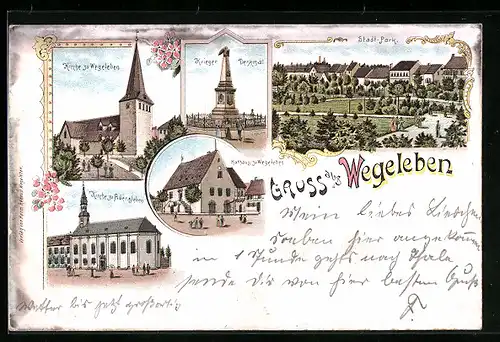 Kirche zu Wegeleben
Krieger Denkmal
Stadt-Park.
Rathaus zu Wegeleben
Kirche zu Adersleben
Gruss aus Wegeleben
Mein liebes Lieschen
soeben hier angekommen
in 1 Stunde gehts nach Thale
sende dir von hier besten Gruß
Wetter bis jetzt großartig